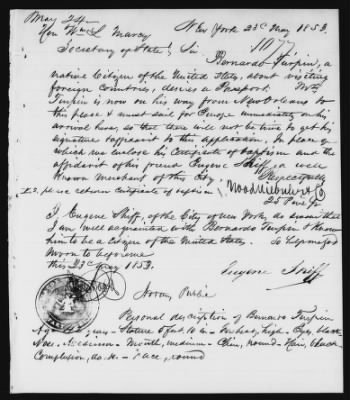 May 24
Hon Wm L Marcy New York 23d May 1853.
Secretary of State, Sir 1077
Bernardo Turpin, a
native Citizen of the United States, about visiting
foreign Countries, desires a Passport. Mr
Turpin is now on his way from New Orleans to
this place & must sail for Europe immediately on his
arrival here, so that there will not be time to get his
signature & affidavit to this application. In place of
which we enclose his Certificate of baptism and the
affidavit of his friend Eugene Shiff a well
Known Merchant of the City. Respectfully
P.S. please return Certificate of baptism
25 Pine St
I Eugene Shiff, of the City of New York, do swear that
I am well acquainted with Bernardo Turpin & Know
him to be a Citizen of the United States. So help me God
Sworn to before me
this 23d May 1853. Eugene Shiff
Notary Public
Personal description of Bernardo Turpin
Age years - Stature 5 ft 10 in - Forehead, high - Eyes, black
Nose, medium - Mouth, medium - Chin, round - Hair, black -
Complexion, dark - Face, round